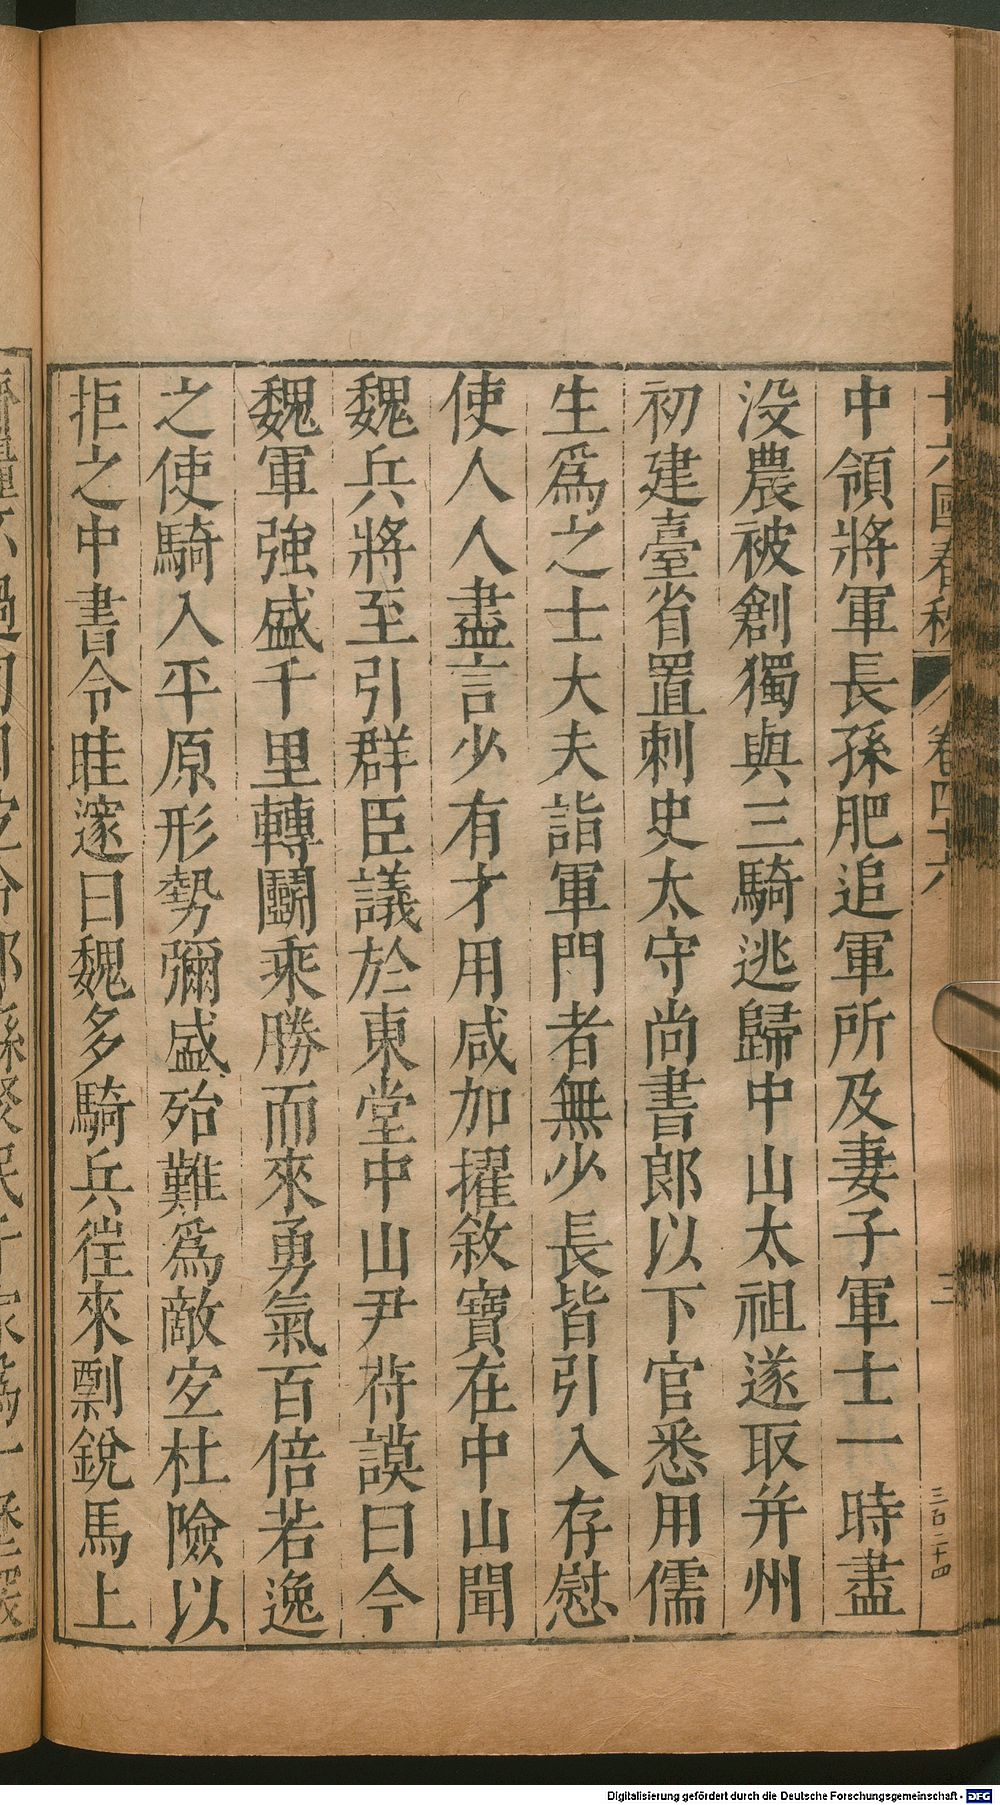 十六國春秋 卷四十六 三 三百二十四
中領將軍長孫肥追軍所及妻子軍士一時盡
没農被創獨與三騎逃歸中山太祖遂取并州
初建臺省置刺史太守尚書郎以下官悉用儒
生爲之士大夫詣軍門者無少長皆引入存慰
使人人盡言少有才用咸加擢敘寶在中山聞
魏兵將至引群臣議於東堂中山尹苻謨曰今
魏軍強盛千里轉鬬乘勝而來勇氣百倍若逸
之使騎入平原形勢彌盛殆難爲敵宐杜險以
拒之中書令眭邃曰魏多騎兵徃來剽銳馬上
Digitalisierung gefördert durch die Deutsche Forschungsgemeinschaft - DFG